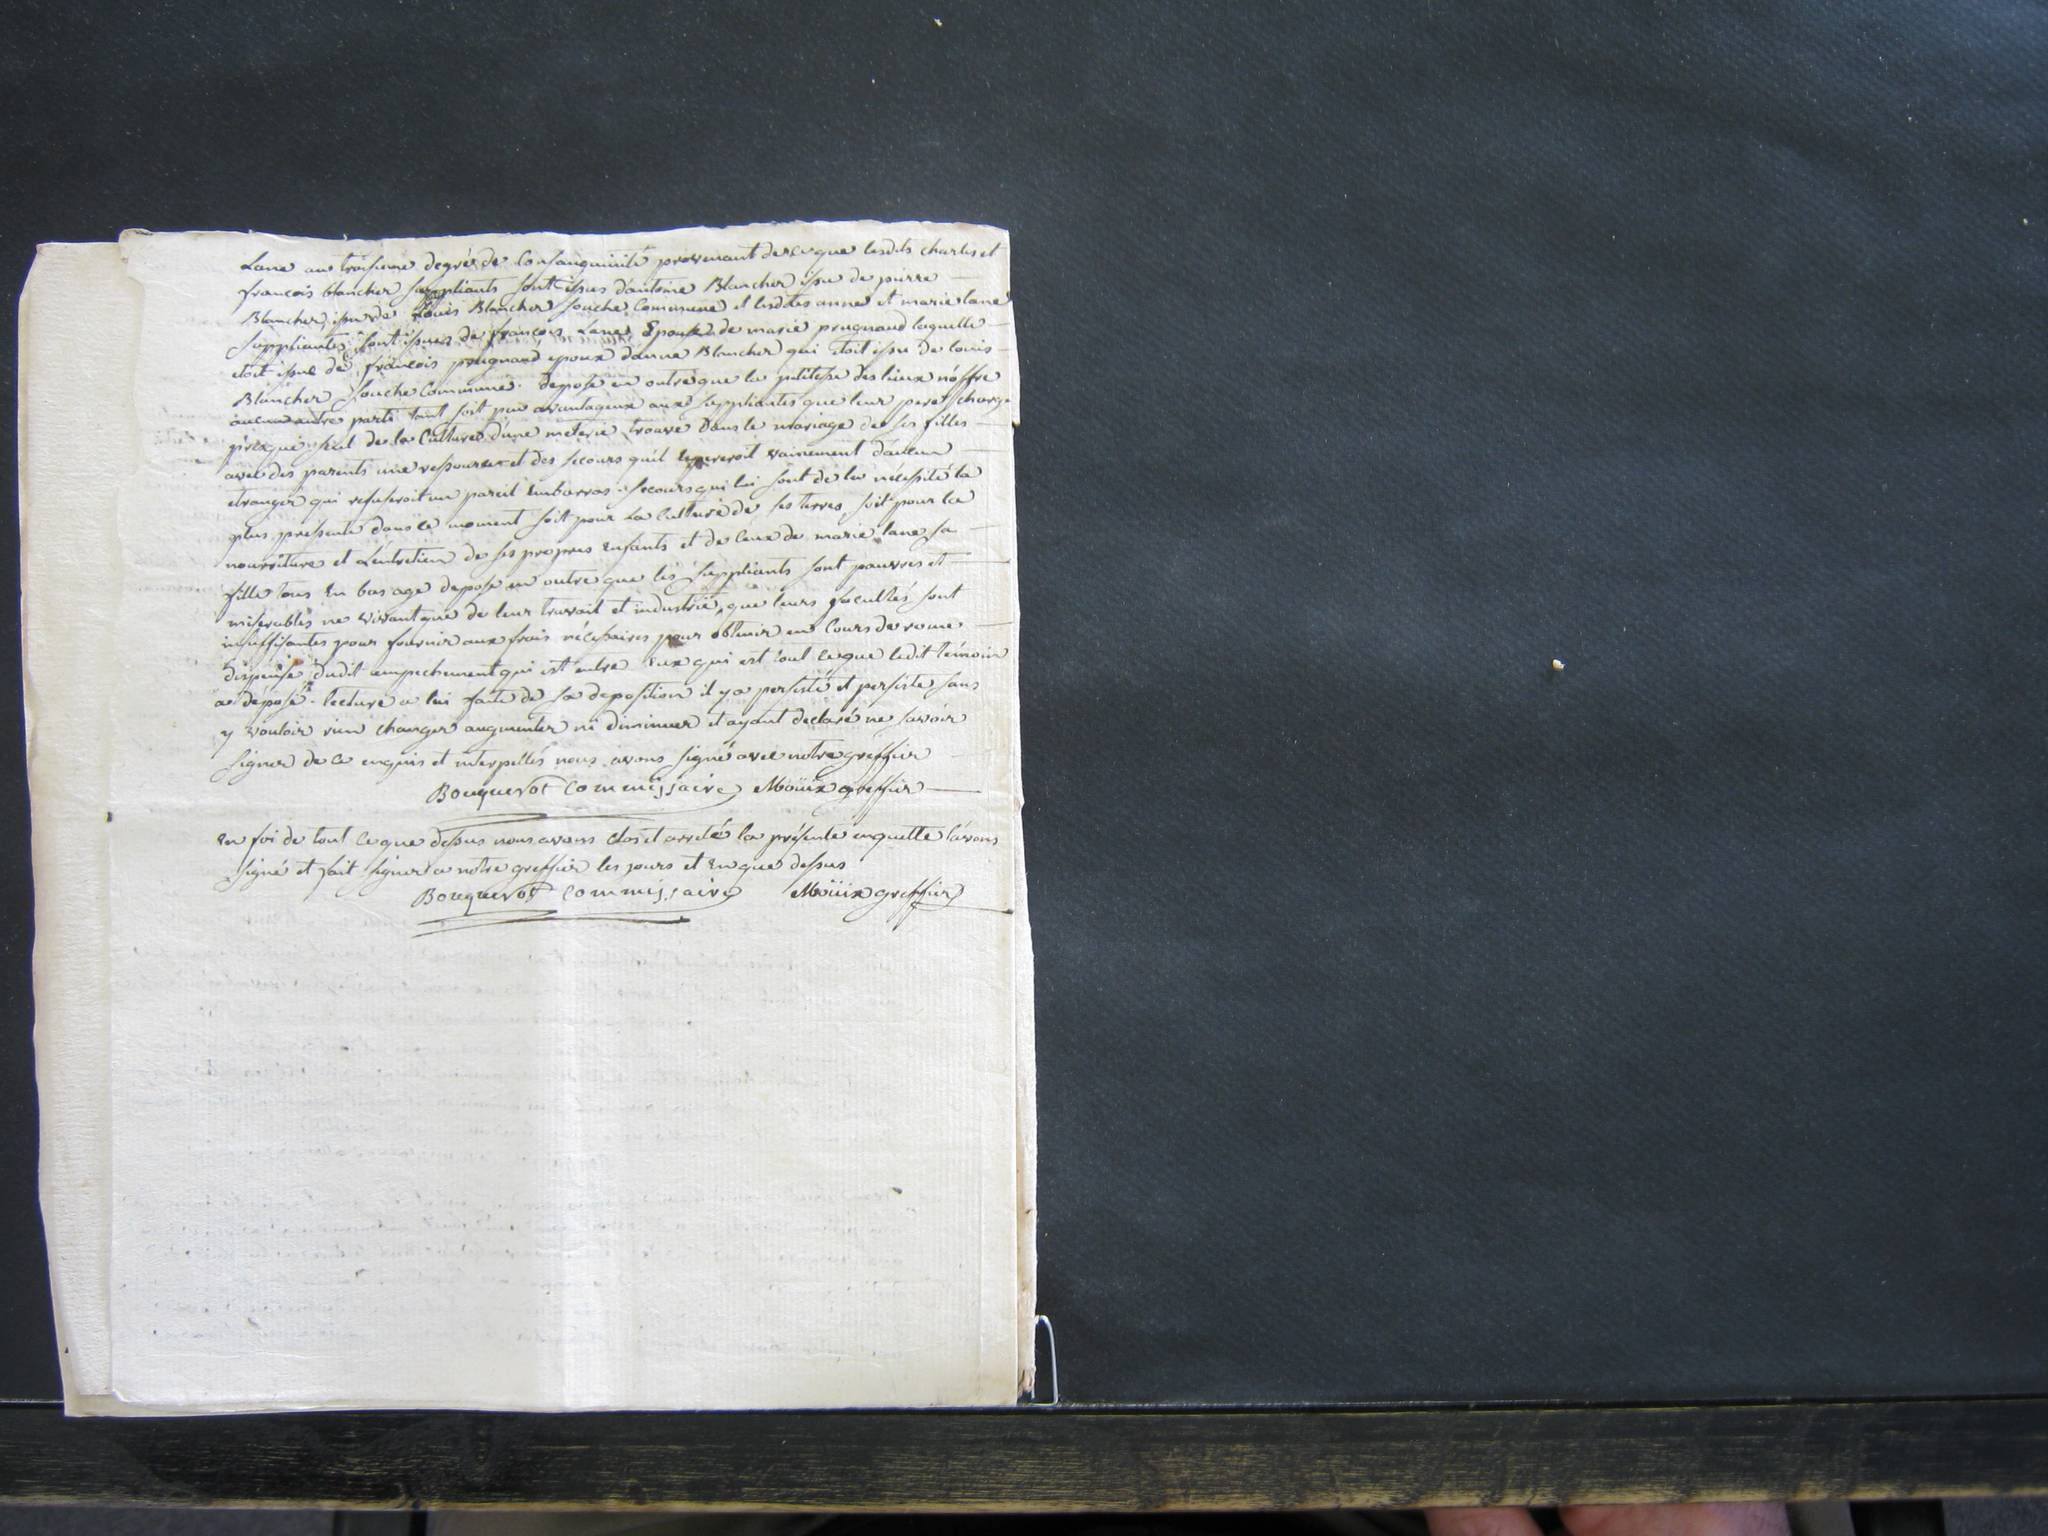 Lane au troisieme degré de Consanguinité provenant de ce que lesdits charles et
francois blancher suppliants sont issus dantoine Blancher issu de pierre
Blancher, issu de Louis Blancher souche Commune et lesdites anne et marie lane
suppliantes sont issues de françois Lane Epoux de marie prugnaud laquelle
etoit issue de françois prugnaud epoux danne Blancher qui etoit issu de louis
Blancher souche Commune. depose en outre que la petitesse des lieux n'offre
aucun autre parti tant soit peu avantageux aux suppliantes que leur pere chargé
presque seul de la Culture d'une meterie trouve dans le mariage de ses filles
avec des parents une ressource et des secours quil Espereroit vainement d'aucun
etranger qui refuseroit un pareil Embarras. secours qui lui sont de la nécessité la
plus pressente dans ce moment soit pour La Culture de ses terres, soit pour la
nourriture et L'entretien de ses propres Enfants et de Ceux de marie lane sa
fille tous En bas age depose en outre que les suppliants sont pauvres et
miserables ne vivant que de leur travail et industrie, que leurs facultés sont
insuffisantes pour fournir aux frais nécessaires pour obtenir en Cours de rome
dispense dudit empechement qui est entre Eux qui est tout ce que ledit temoin
a deposé. lecture a lui faite de sa deposition il y a persisté et persiste sans
y vouloir rien changer augmenter ni diminuer et ayant declaré ne savoir
signer de ce enquis et interpellés nous avons signé avec notre greffier
Bouquerot Commissaire Moüix greffier
En foi de tout ce que dessus nous avons clos et arreté la présente enquette l'avons
signé et fait signer a notre greffier les jours et En que dessus
Bouquerot Commissaire Moüix greffier